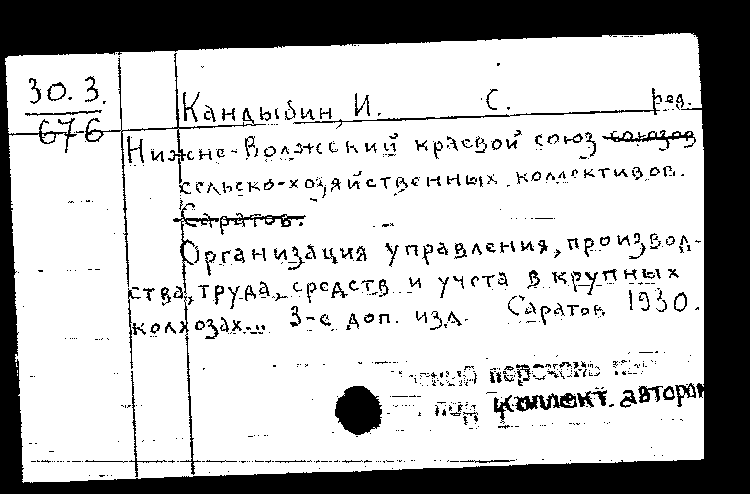 30.3.
676
Кандыбин, И. С. ред.
Нижне-Волжский краевой союз союзов
сельско-хозяйственных коллективов.
Саратов.
Организация управления, производ-
ства, труда, средств и учета в крупных
колхозах... 3-е доп. изд. Саратов 1930.
перечень
под коллект. автором